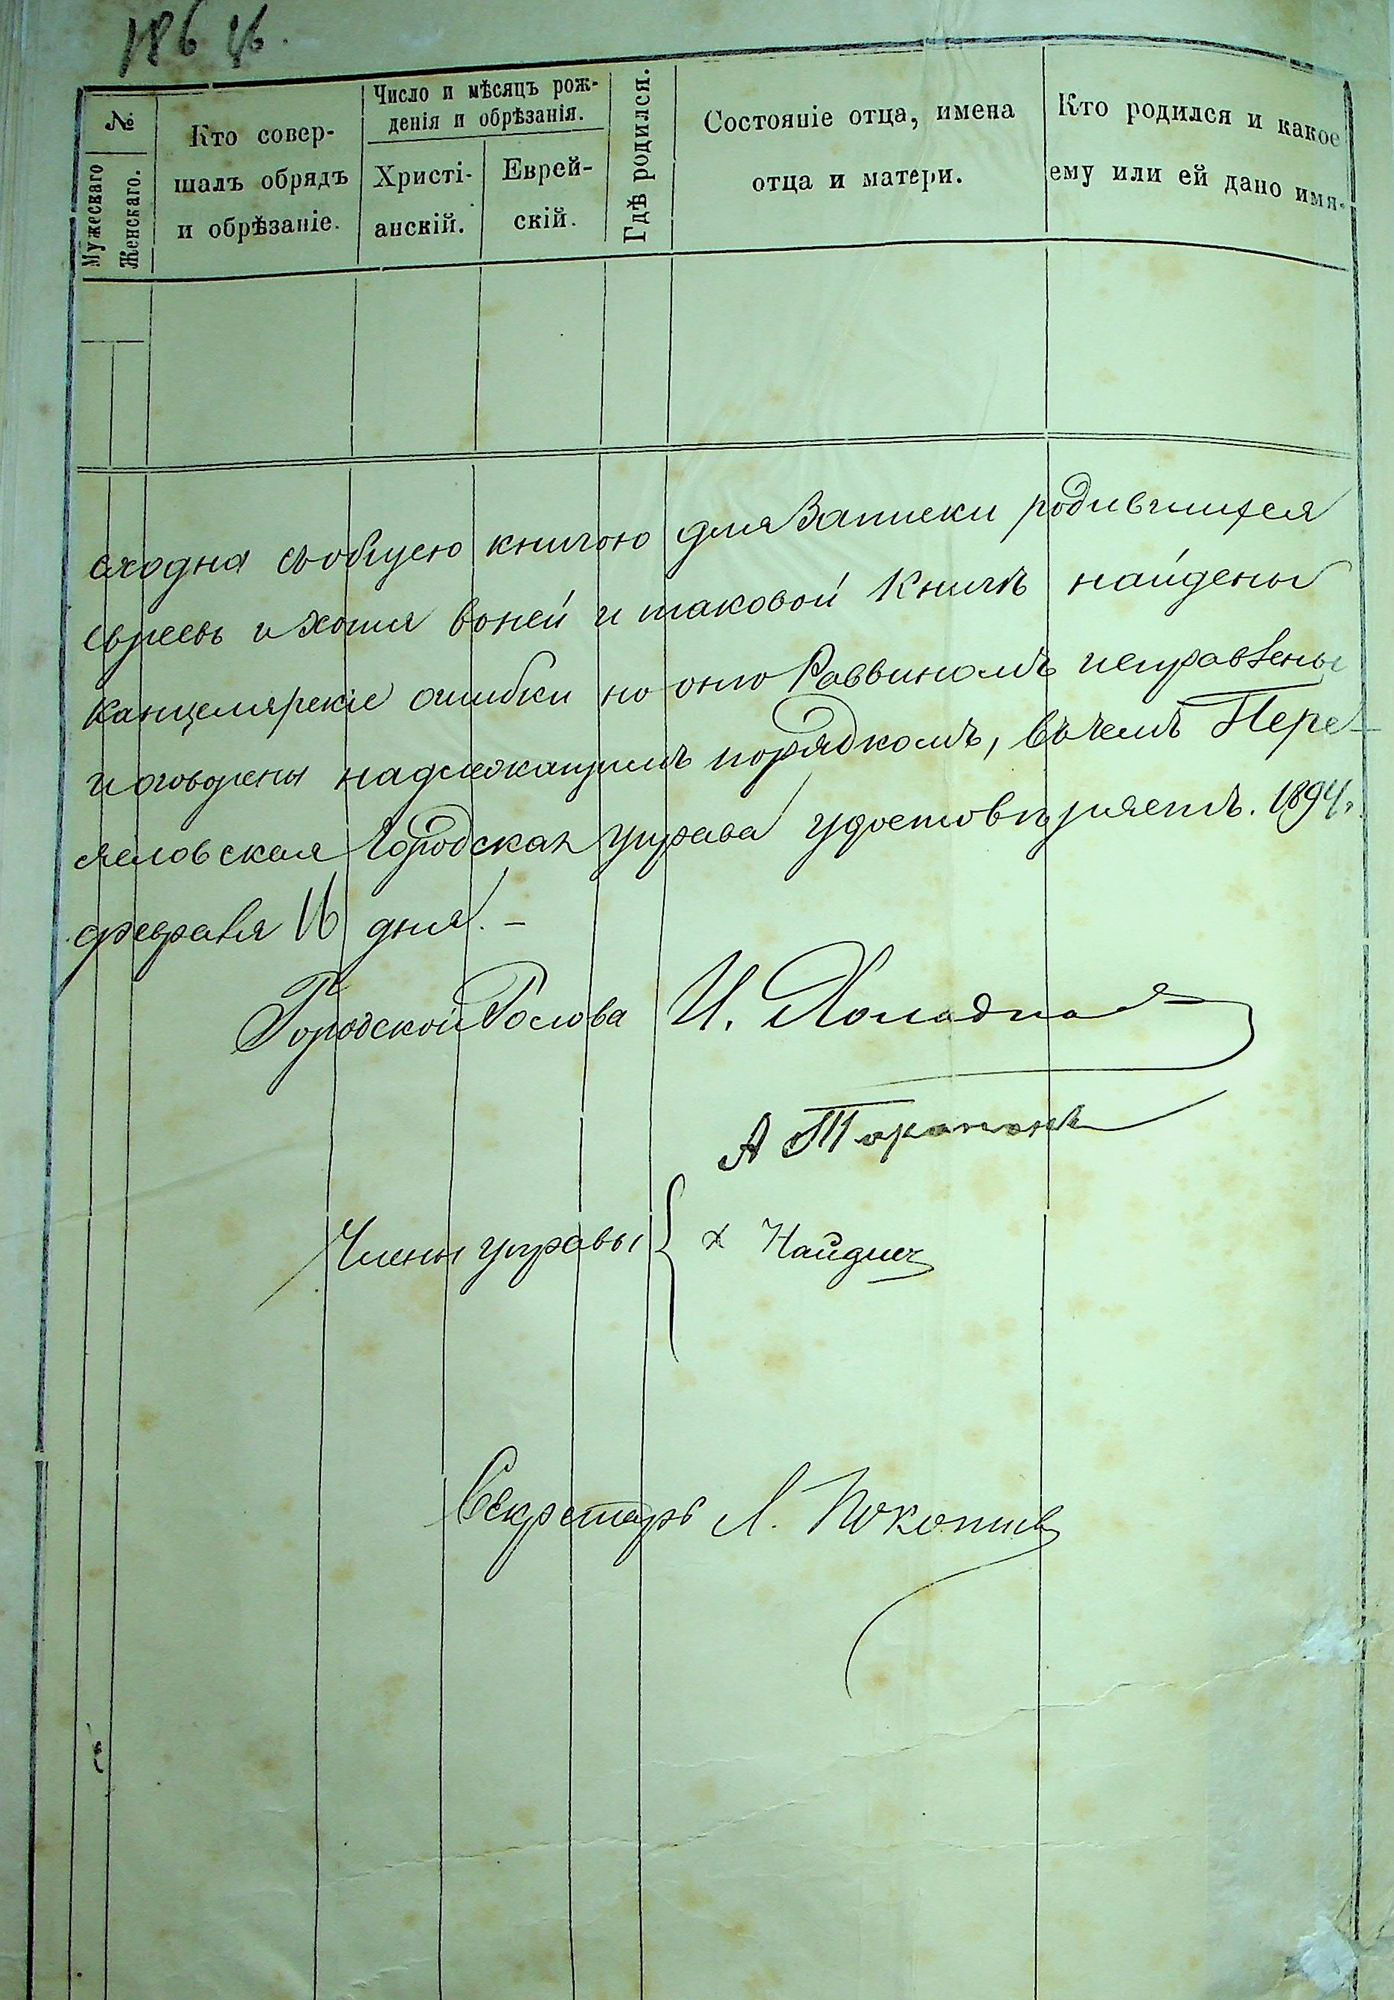 186 об.
№
Мужескаго
Женскаго.
Кто совер-
шалъ обрядъ
и обрѣзаніе.
Число и мѣсяцъ рож-
денія и обрѣзанія.
Христі-
анскій.
Еврей-
скій.
Гдѣ родился.
Состояніе отца, имена
отца и матери.
Кто родился и какое
ему или ей дано имя.
сходна съобщею книгою для Записки родившихся
евреевъ и хотя воней и таковой Книгѣ найдены
Канцелярскіе ошибки но оно Раввиномъ исправлены
и оговорены надлежащимъ порядкомъ, въчемъ Пере-
яславская Городская управа удостовѣряетъ. 1894 г.
февраля 16 дня. –
Городской Голова И.
А
Члены управы { Х Найдич
Секретарь Л.